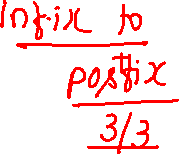 infix to
postfix
3/3